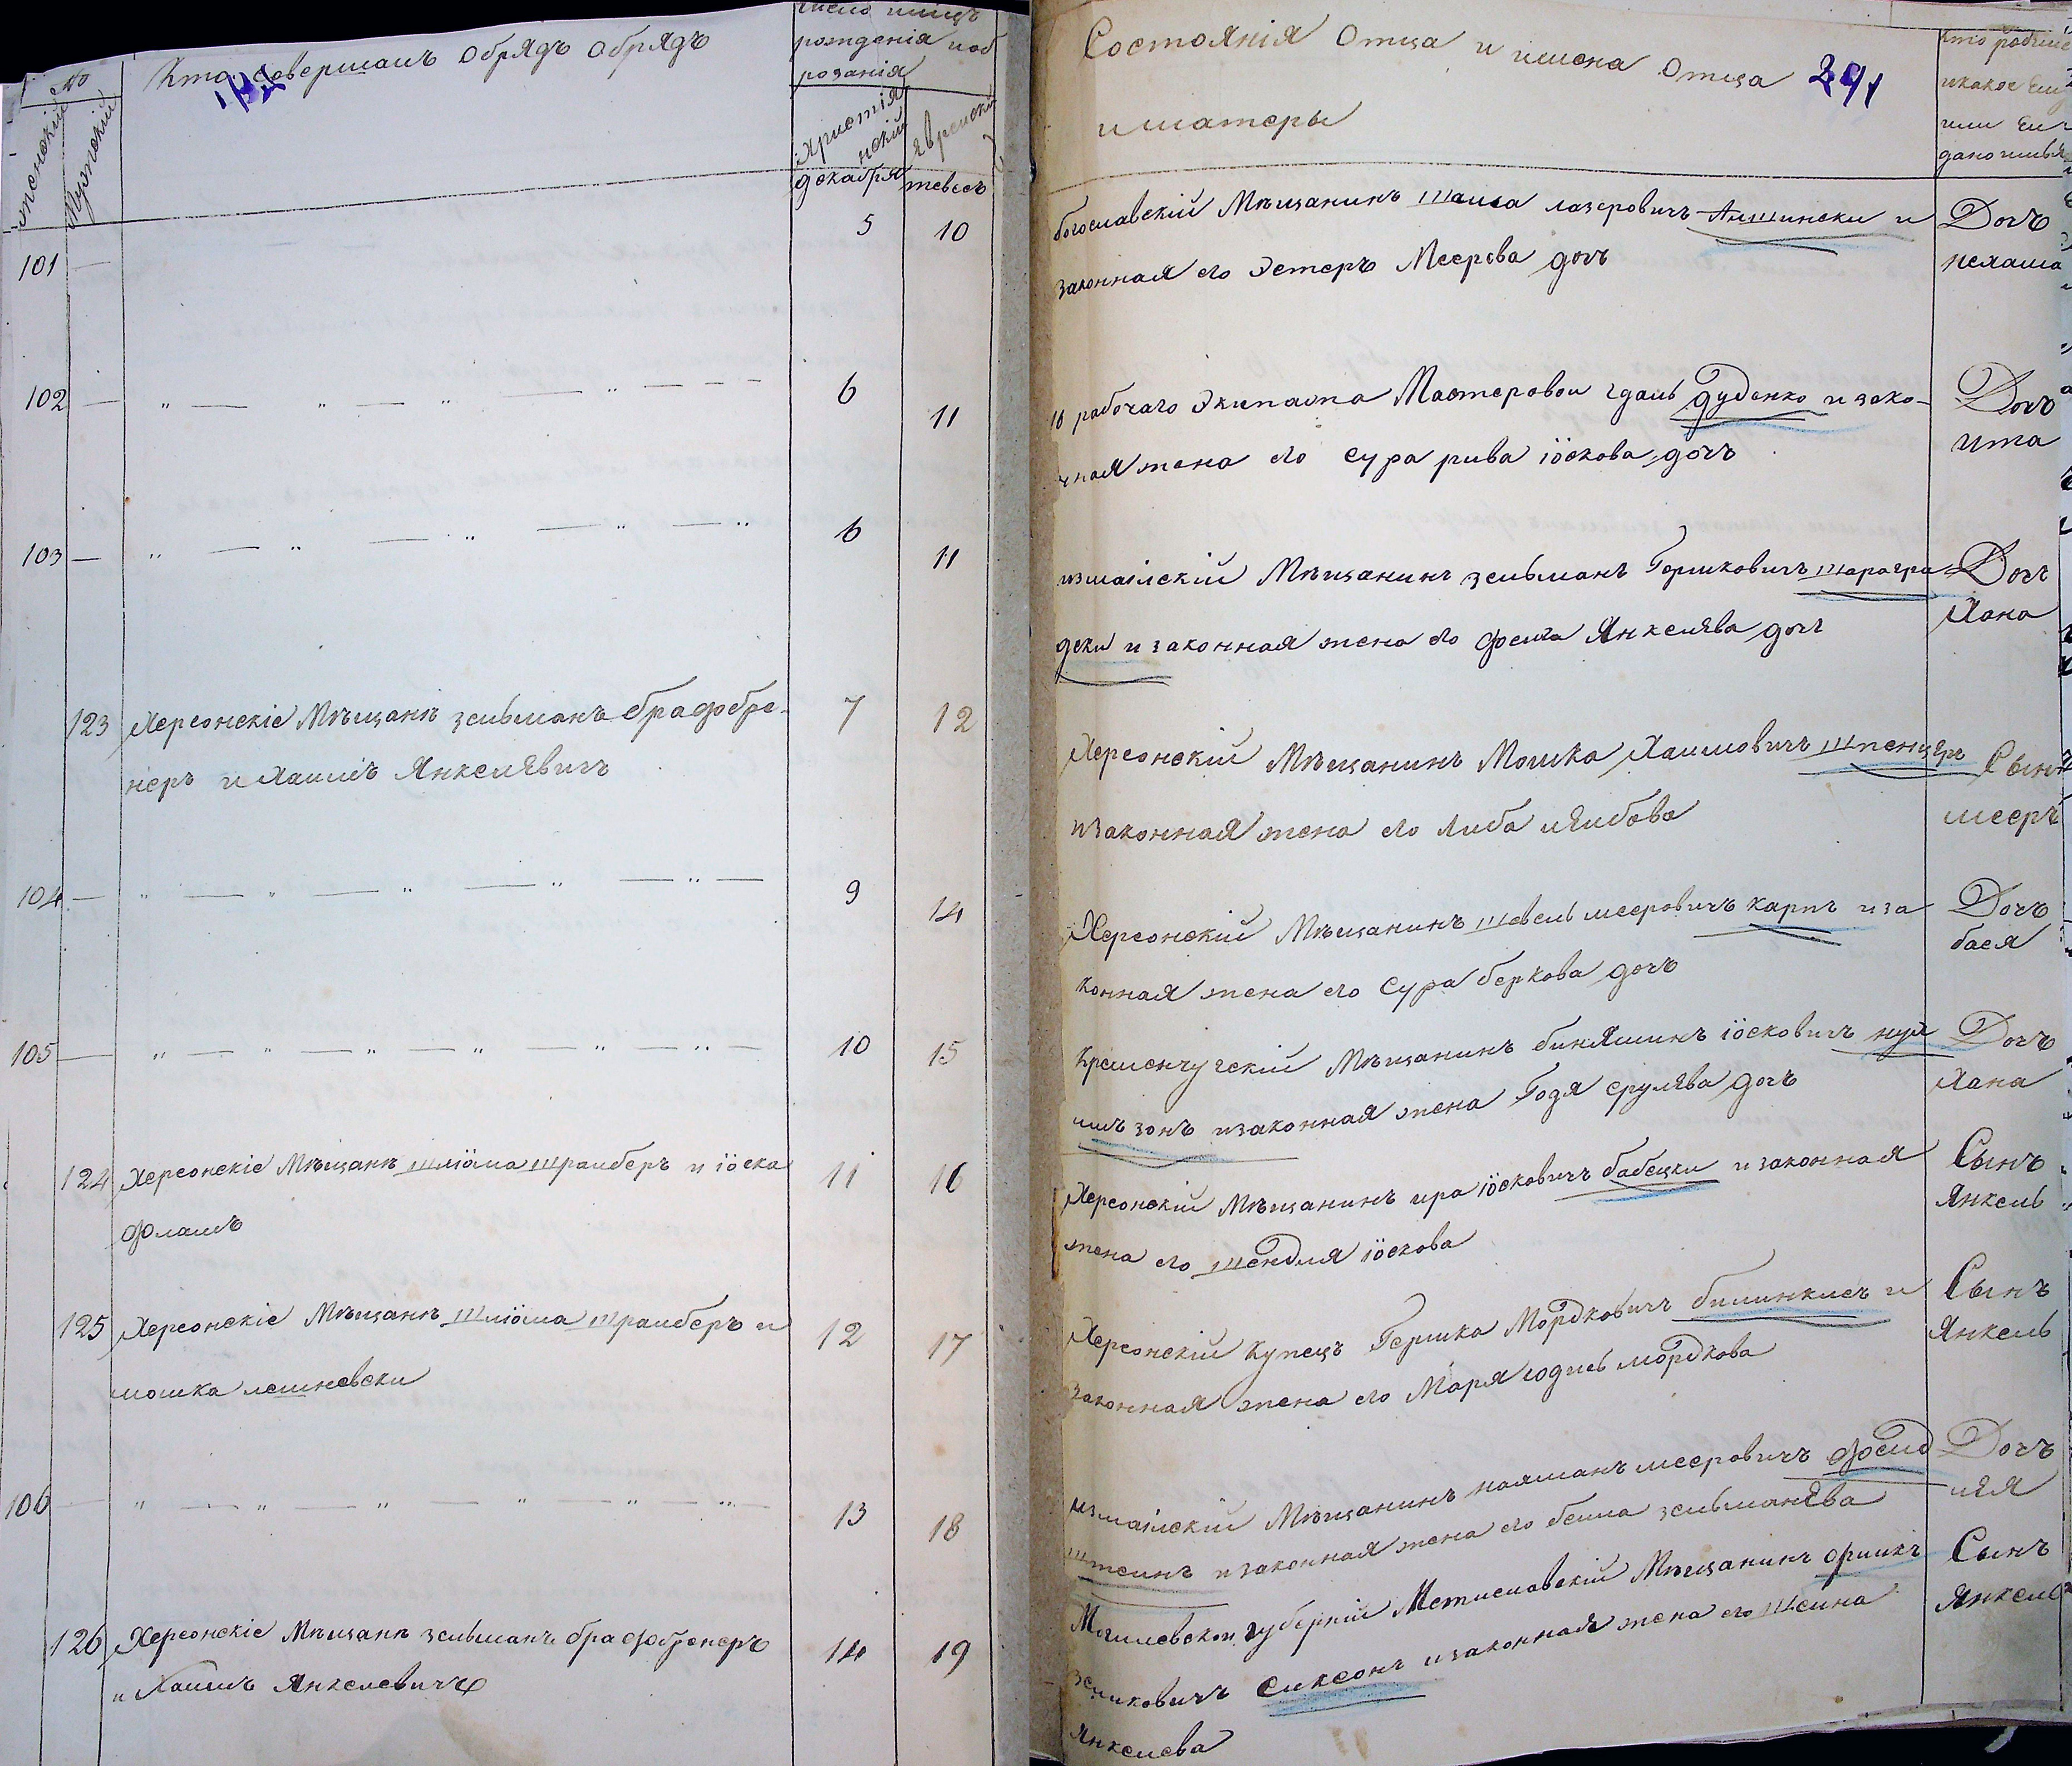 №
женскій
Мужескій
Кто совершалъ Обрядъ Обрядъ
рожденія и об
розанія
Христія
нскій
Еврейскій
декабря
тевесъ
101 —
5
10
102 —
6
11
103 —
6
11
123
Херсонскіе Мѣщанѣ зельманъ брафобре-
неръ и Хаимъ Янкелѣвичъ
7
12
104 —
9
14
105 —
10
15
124
Херсонскіе Мѣщанѣ шліома трамберъ и іоска
фламъ
11
16
125
Херсонскіе Мѣщанѣ Шліома трамберъ и
мошка лешневски
12
17
106 —
13
18
126
Херсонскіе Мѣщанѣ зельманъ брафобренеръ
и Хаимъ Янкелевичъ
14
19
Состоянія Отца и имена Отца 291
и матеры
Кто родился
и какое ему
или ей
дано имя
богославскій Мѣщанинъ лазеровичъ и
законная его Эстеръ Меерова дочь
Дочь
рабочаго Экипажа Мастеровои гдаль дуденко и зако-
нная жена его сура рива іоскова дочъ
Дочъ
ита
измаілскій Мѣщанинъ зельманъ Гершковичъ шарагра
дски и законная жена его феига Янкелѣва дочъ
Дочъ
Хана
Херсонскій Мѣщанинъ Мошка Хаимовичъ шпенцѣръ
и законная жена его Либа лѣибова
Сынъ
мееръ
Херсонскій Мѣщанинъ шевель мееровичъ карпъ и за
конная жена его Сура беркова дочъ
Дочъ
бася
Кременчугскій Мѣщанинъ биняминъ іосковичъ
зонъ и законная жена Годя срулѣва дочъ
Дочъ
Хана
Херсонскій Мѣщанинъ ира іосковичъ бабецки и законная
жена его шендля іоскова
Сынъ
Янкель
Херсонскій Купецъ Гершка Мордковичъ билинкисъ и
законная жена его Маря юдись мордкова
Сынъ
Янкель
измаілскій Мѣщанинъ нахманъ мееровичъ фелд
штеинъ и законная жена его беила зельманѣва
Дочъ
лѣя
Могилевской губерніи Мстиславскій Мѣщанинъ
сиксонъ и законная жена его шеина
Янкелева
Сынъ
Янкель